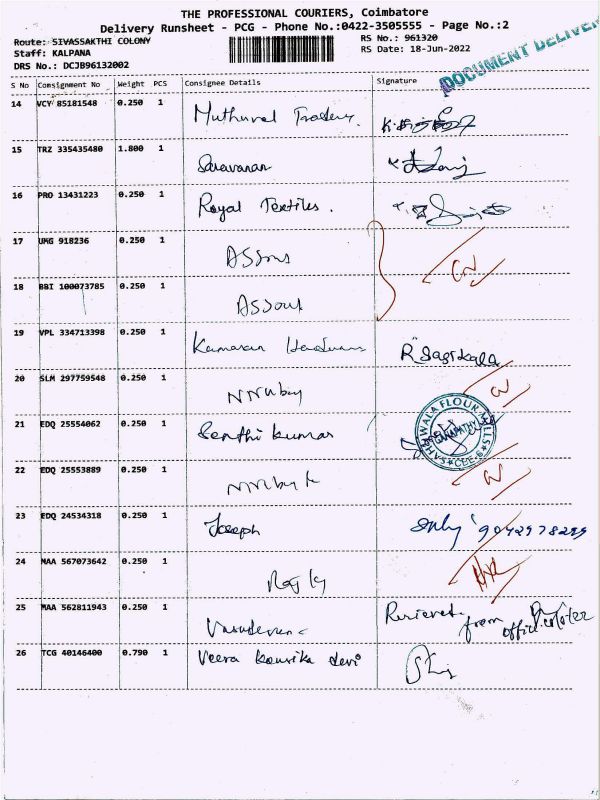 THE PROFESSIONAL COURIERS, Coimbatore
Delivery Runsheet - PCG - Phone No.:0422-3505555 - Page No.:2
Route: SIVASSAKTHI COLONY RS No.: 961320
Staff: KALPANA RS Date: 18-Jun-2022
DRS No.: DCJB96132002
DOCUMENT DELIVER
S No Consignment No Weight PCS Consignee Details Signature
14 VCY 85181548 0.250 1 Muthuval Traders.
15 TRZ 335435480 1.800 1 Saravanan
16 PRO 13431223 0.250 1 Royal Textiles.
17 UMG 918236 0.250 1
18 BBI 100073785 0.250 1
19 VPL 334713398 0.250 1 R Sasikala
20 SLM 297759548 0.250 1
21 EDQ 25554062 0.250 1 Senthi kumar
GANAPATHY
FLOUR MILLS
CBE-6
22 EDQ 25553889 0.250 1
23 EDQ 24534318 0.250 1 Joseph only
24 MAA 567073642 0.250 1
25 MAA 562811943 0.250 1 from
26 TCG 40146400 0.790 1 Veera kousika devi